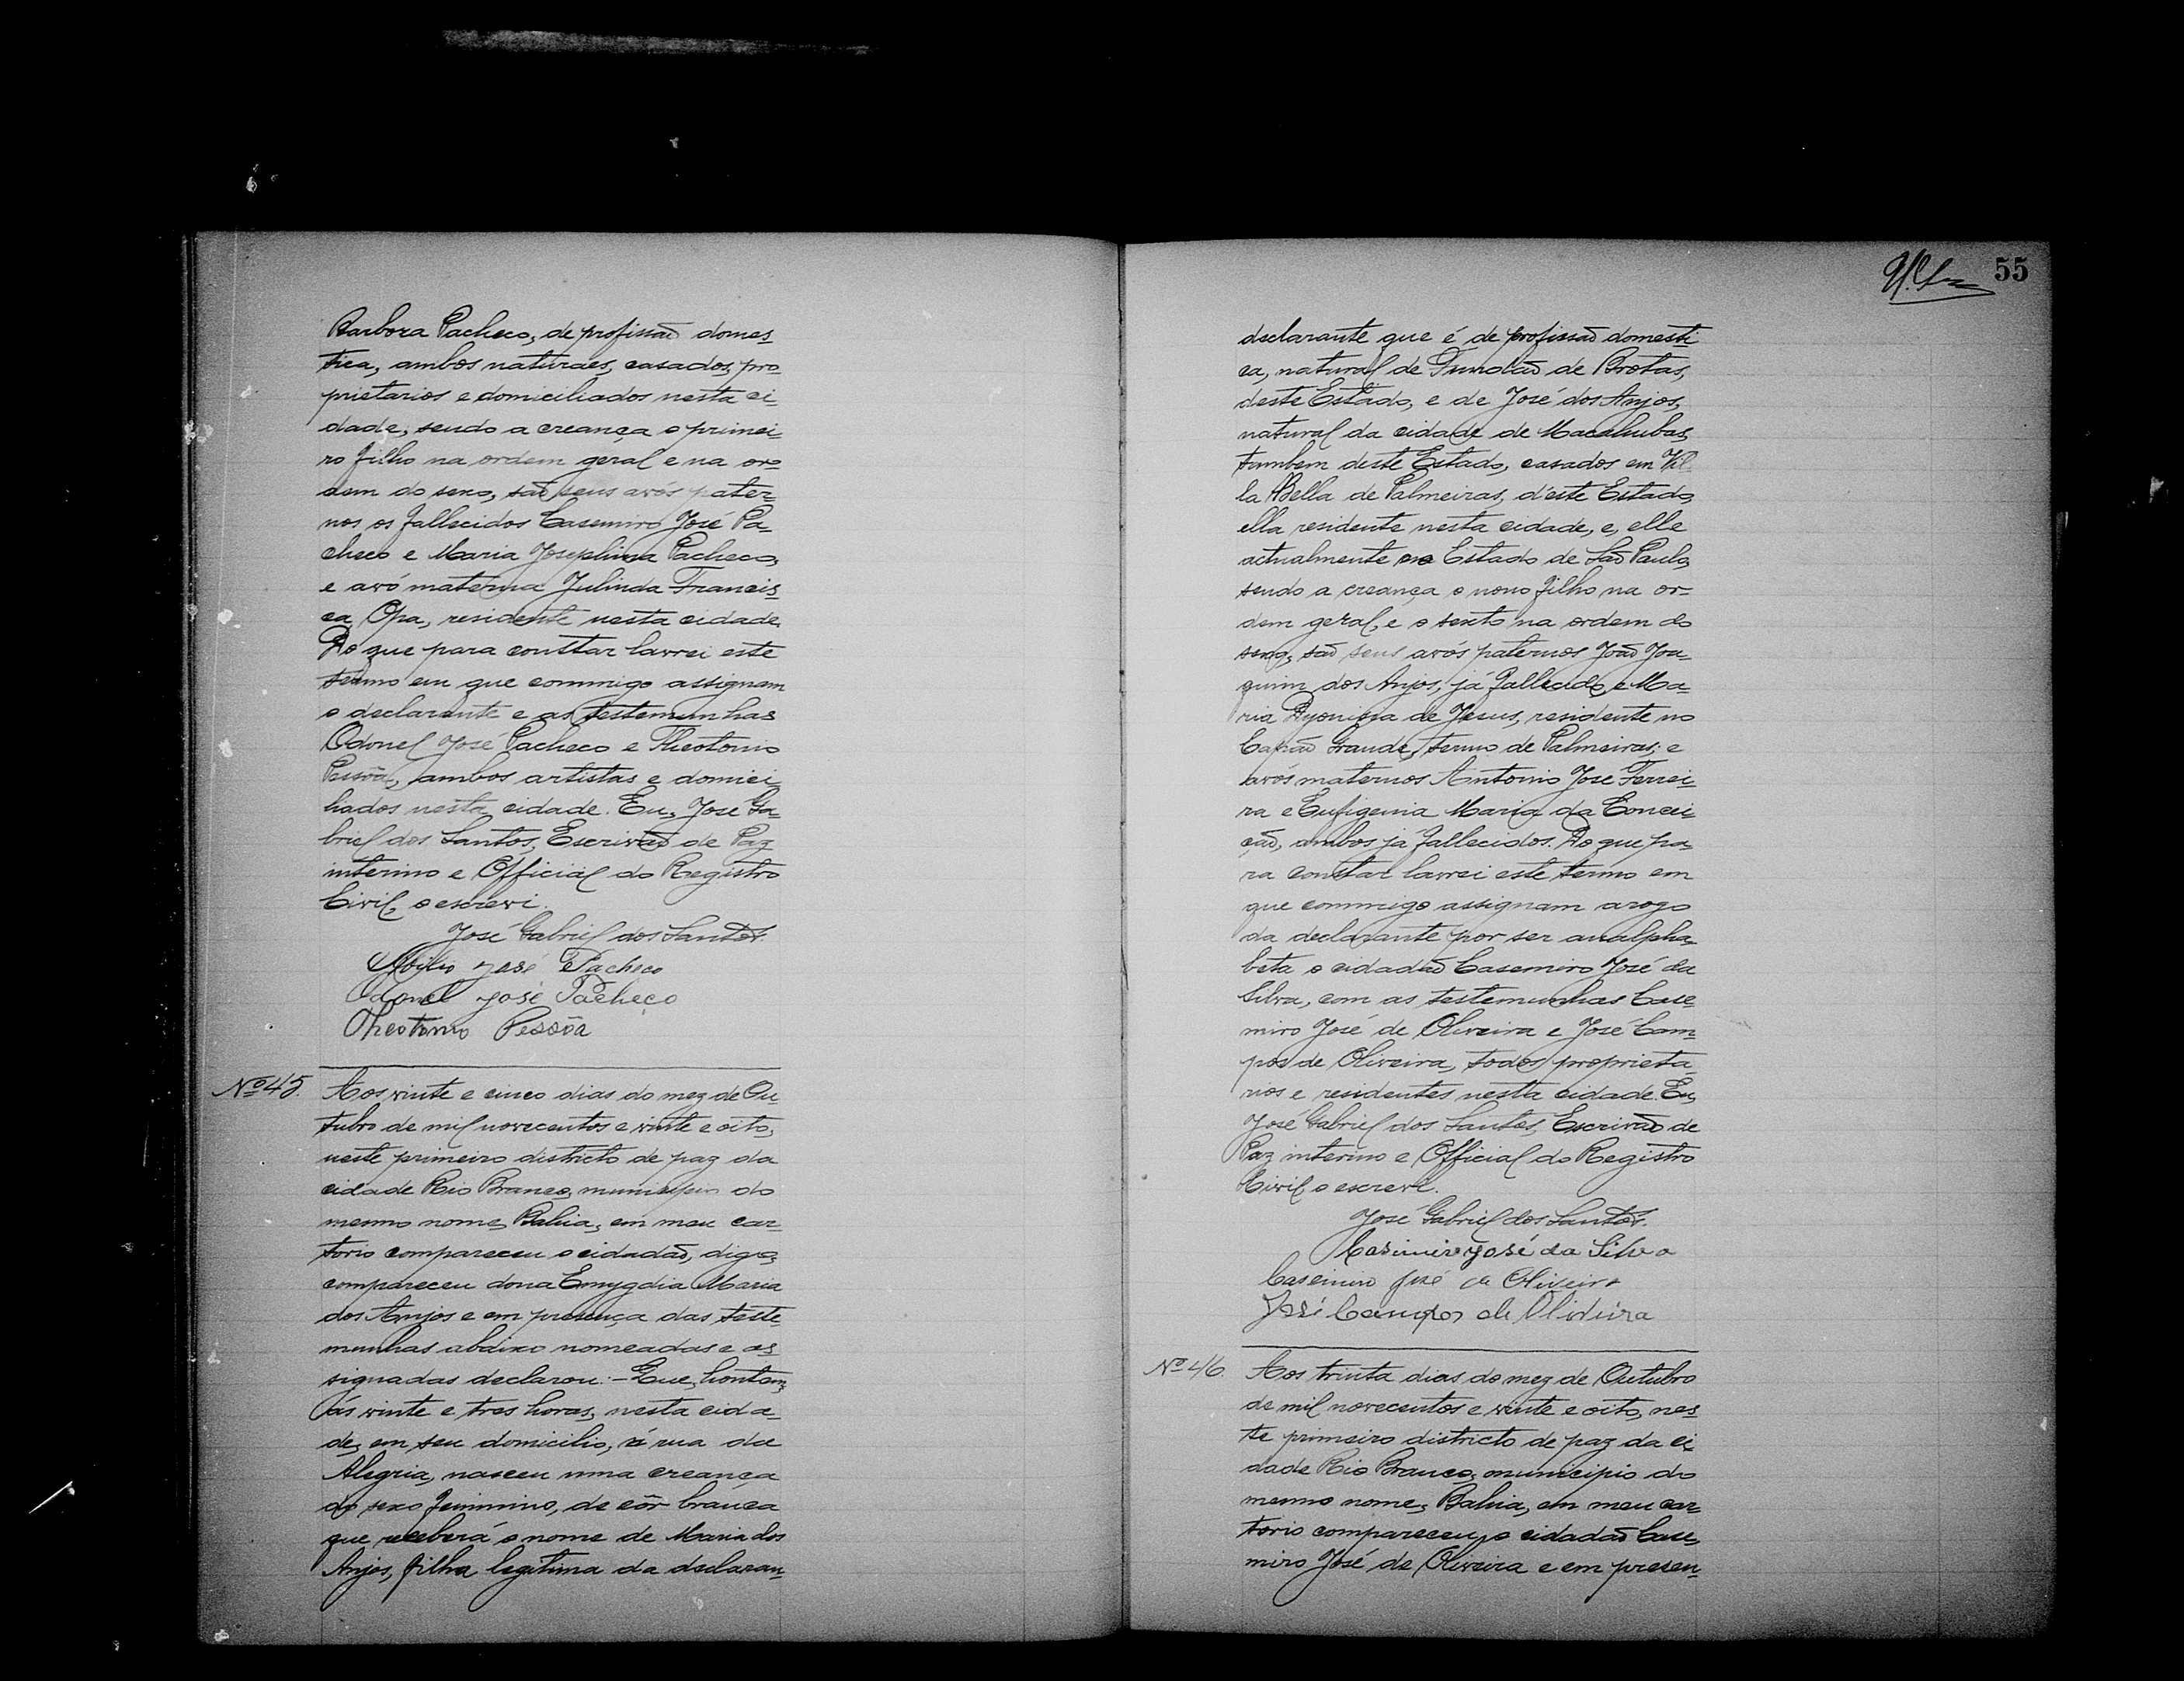 Barbora Pacheco, de profissaõ domes-
tica, ambos naturaes, casados, pro-
prietarios e domiciliados nesta ci-
dade; sendo a creança o primei-
ro filho na ordem geral e na or-
dem do sexo, saõ seus avós pater-
nos os fallecidos Casemiro José Pa-
checo e Maria Josephina Pacheco,
e avó materna Julinda Francis-
ca Opa, residente nesta cidade.
Do que para constar lavrei este
termo em que commigo assignam
o declarante e as testemunhas
Odonel José Pacheco e Theotonio
Pessôa, ambos artistas e domici-
liados nesta cidade. Eu, José Ga-
briel dos Santos, Escrivaõ de Paz
interino e Official do Registro
Civil, o escrevi.
José Gabriel dos Santos.
José Pacheco
Odonel José Pacheco
Theotonio Pessôa
Nº 45.
Aos vinte e cinco dias do mez de Ou-
tubro de mil novecentos e vinte e oito,
neste primeiro districto de paz da
cidade Rio Branco, municipio do
mesmo nome, Bahia, em meu car-
torio compareceu o cidadaõ, digo,
compareceu dona Emygdia Maria
dos Anjos e em presença das teste-
munhas abaixo nomeadas e as-
signadas declarou:- Que, hontem,
ás vinte e tres horas, nesta cida-
de, em seu domicilio, á rua da
Alegria, nasceu uma creança
do sexo feminino, de côr branca
que receberá o nome de Maria dos
Anjos, filha legitima da declaran-
55
declarante que é de profissaõ domesti-
ca, natural de Fundaõ de Brotas,
deste Estado, e de José dos Anjos,
natural da cidade de Macahubas,
tambem deste Estado, casados em Vil-
la Bella de Palmeiras, d'este Estado,
ella residente nesta cidade, e, elle
actualmente no Estado de Saõ Paulo,
sendo a creança o nono filho na or-
dem geral, e o sexto na ordem do
sexo, saõ seus avós paternos Joaõ Joa-
quim dos Anjos, já fallecido, e Ma-
ria Dyonisia de Jesus, residente no
Capaõ Grande, termo de Palmeiras; e
avós maternos Antonio José Ferrei-
ra e Eufigenia Maria da Concei-
çaõ, ambos já fallecidos. Do que pa-
ra constar lavrei este termo em
que commigo assignam arogo
da declarante por ser analpha-
beta o cidadaõ Casemiro José da
Silva, com as testemunhas Case-
miro José de Oliveira e José Cam-
pos de Oliveira, todos proprieta-
rios e residentes nesta cidade. Eu,
José Gabriel dos Santos, Escrivaõ de
Paz interino e Official do Registro
Civil o escrevi.
José Gabriel dos Santos.
Casimiro José da Silva
Casemiro José de Oliveira
José Campos de Oliveira
Nº 46.
Aos trinta dias do mez de Outubro
de mil novecentos e vinte e oito, nes-
te primeiro districto de paz da ci-
dade Rio Branco, municipio do
mesmo nome, Bahia, em meu car-
torio compareceu o cidadaõ Case-
miro José de Oliveira e em presen-